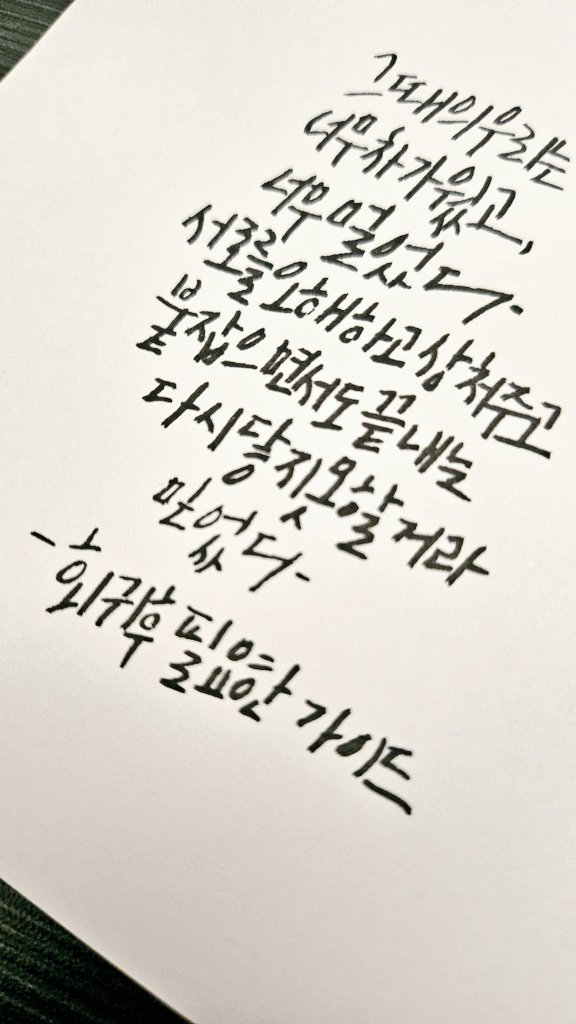 그때의 우리는
너무 차가웠고,
너무 멀었다.
서로를 오해하고 상처주고
붙잡으면서도 끝내는
다시 닿지 못할 거라
믿었다.
- 회귀부 필요한 가이드